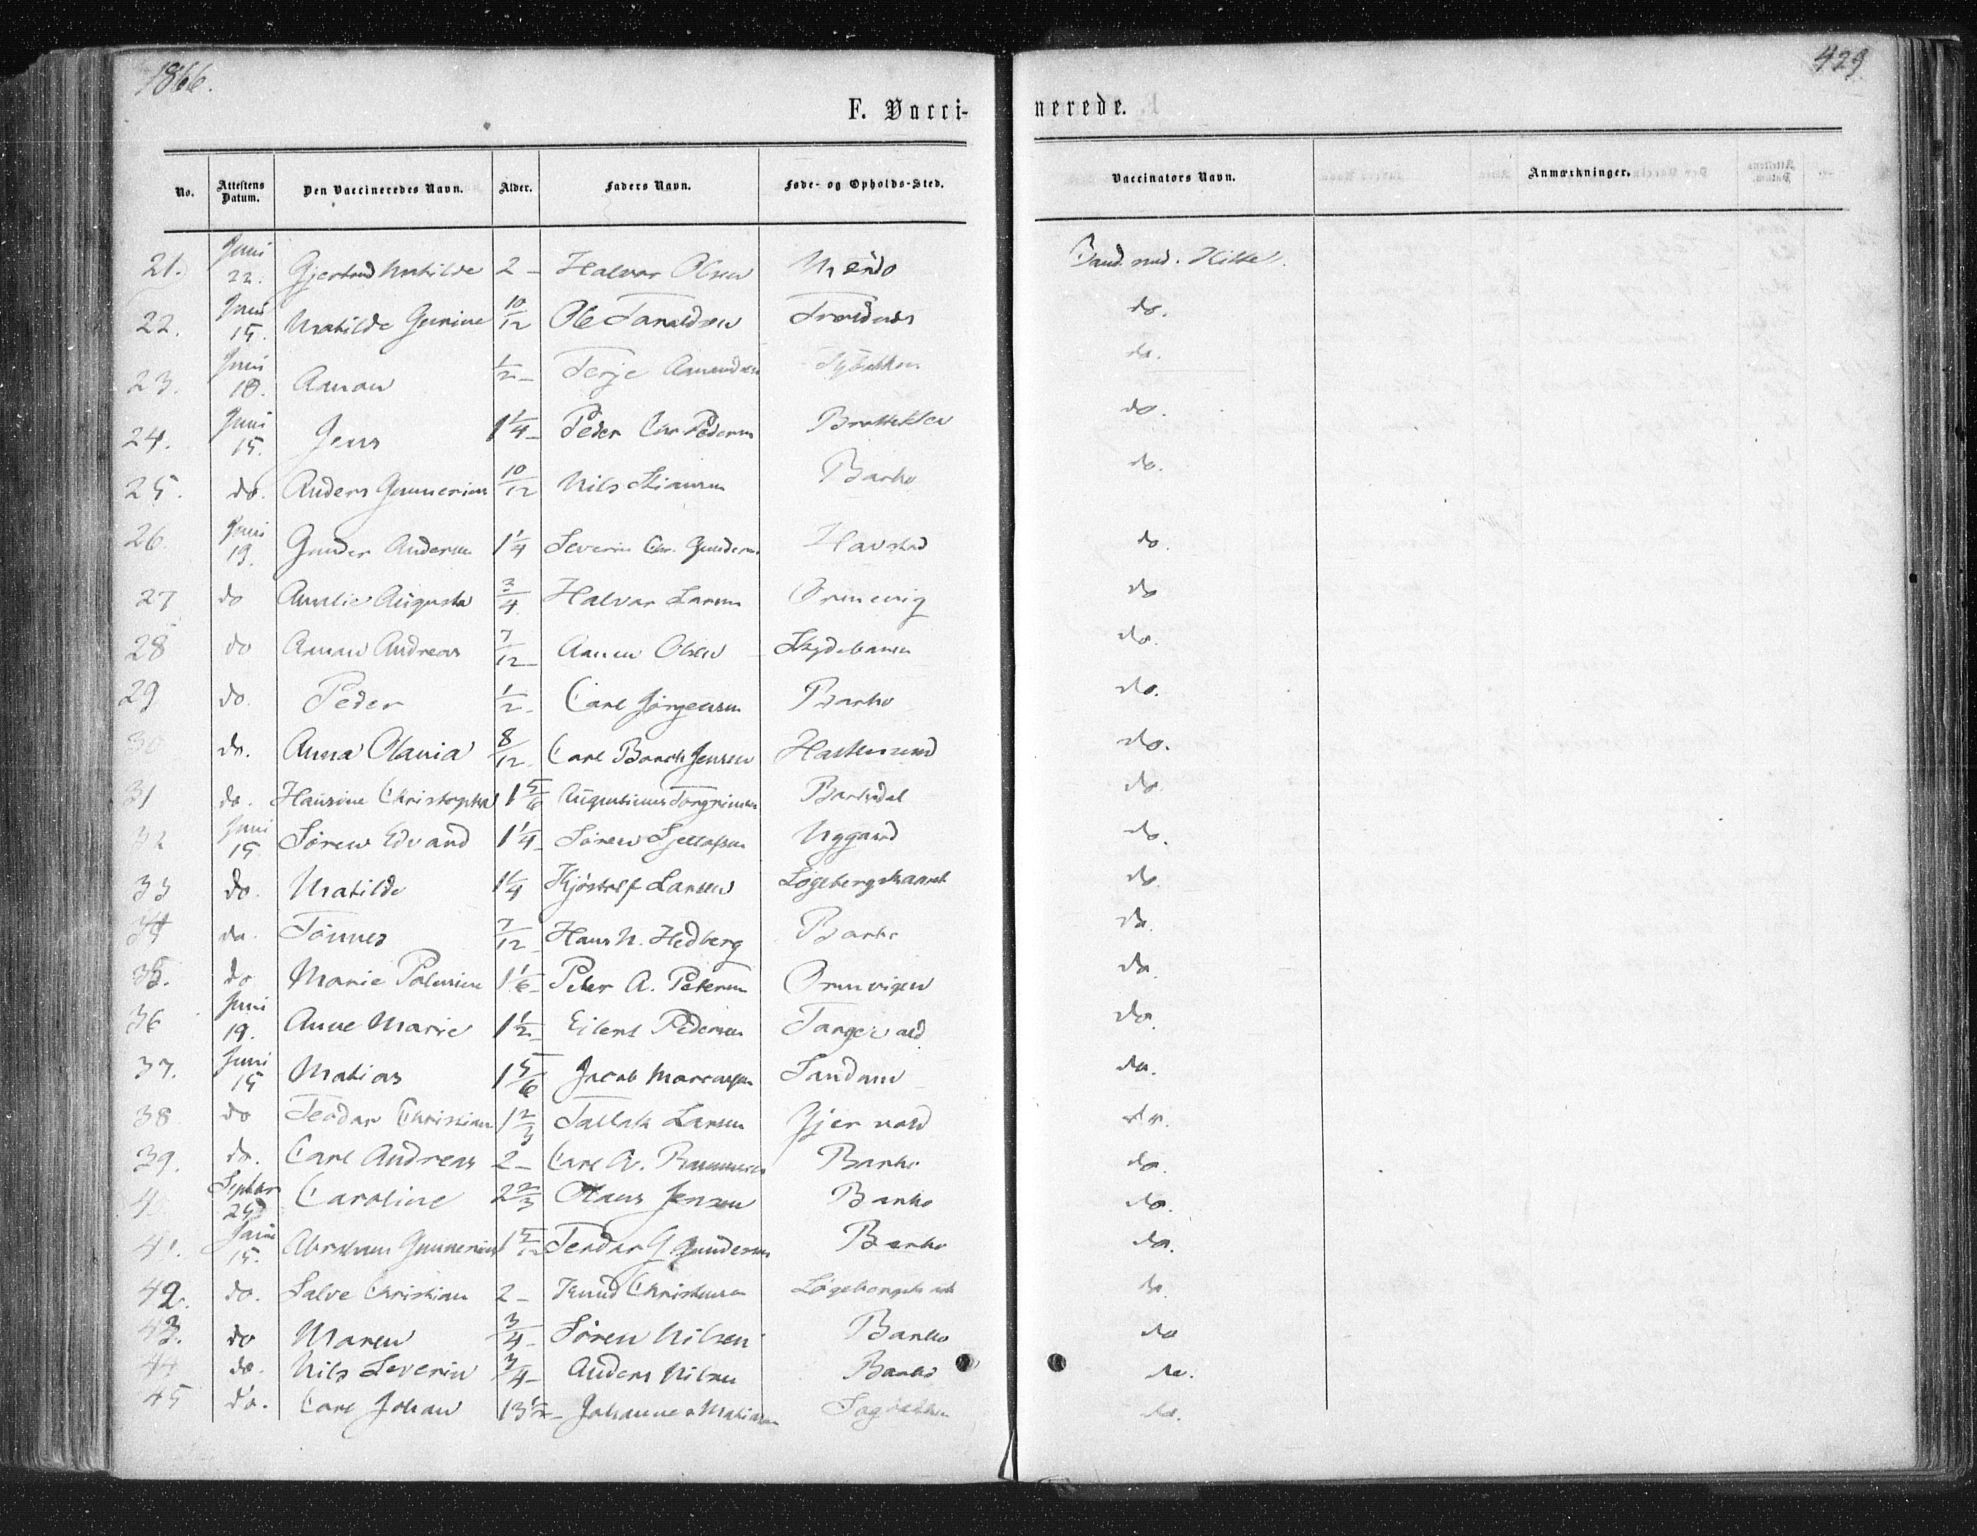 1866.
429
F. Vacci-
nerede.
No. Attestens Datum. Den Vaccineredes Navn. Alder. Faders Navn. Føde- og Opholds-Sted. Vaccinators Navn. Anmærkninger.
21. Juni 22. Gjertrud Mathilde 2 - Halvor Olsen Mærdø
22. Juni 15. Matilde Gurine 10/12 Ole Taraldsen Tromdnæs do.
23. Juni 18. Aanon 1/2 - Terje Aanundsen do.
24. Juni 15. Jens 1 1/4 - Peder Chr Pedersen Bratteklev do.
25. do. Anders Gunnerius 10/12 Nils Barbo do.
26. Juni 19. Gunder Andersen 1 1/4 Severin Chr. Gundersen Havstad do.
27 do Amalie Augusta 3/4 Halvor Larsen Ormevig do
28 do Aanon Andreas 7/12 - Aanen Olsen Skydebanen do.
29 do. Peder 1/2 - Carl Jörgensen Barbo do.
30 do. Anna Olavia 8/12 Carl Barth Jensen Hastensund do.
31 do. Hansine Christophia 1 5/6 Augustinus Torgrimsen Barbodal do
32 Juni 15 Sören Edvard 1 1/4 - Sören Uggard do.
33 do. Matilde 1 1/4 Kjöstolf Larsen do.
34 do. Tönnes 7/12 - Hans N. Hedberg Barbo do.
35. do Marie Palmine 1 1/6 - Peter A. Petersen Ormvigen do.
36 Juni 19. Anne Marie 1 1/2 - Eilert Pedersen do.
37. Juni 15 Matias 1 5/6 Jacob Marcussen Sandum do.
38 do Teodor Christian 1 2/3 Tallak Larsen do.
39. do. Carl Andreas 2 - Carl A. Barbo do.
4 Septbr 29 Caroline 2 2/3 Olaus Jensen Barbo do.
41. Juni 15. Abraham Gunnerius 1 5/12 Teodor G Gundersen Barbo do.
42. do. Salve Christian 2 - Knud Christensen do.
43. do Maren 3/4 - Sören Nilsen Barbo do
44 do. Nils Severin 3/4 - Anders Nilsen Barbo do.
45 do. Carl Johan 13 1/2 - Johannes Matiasen do.